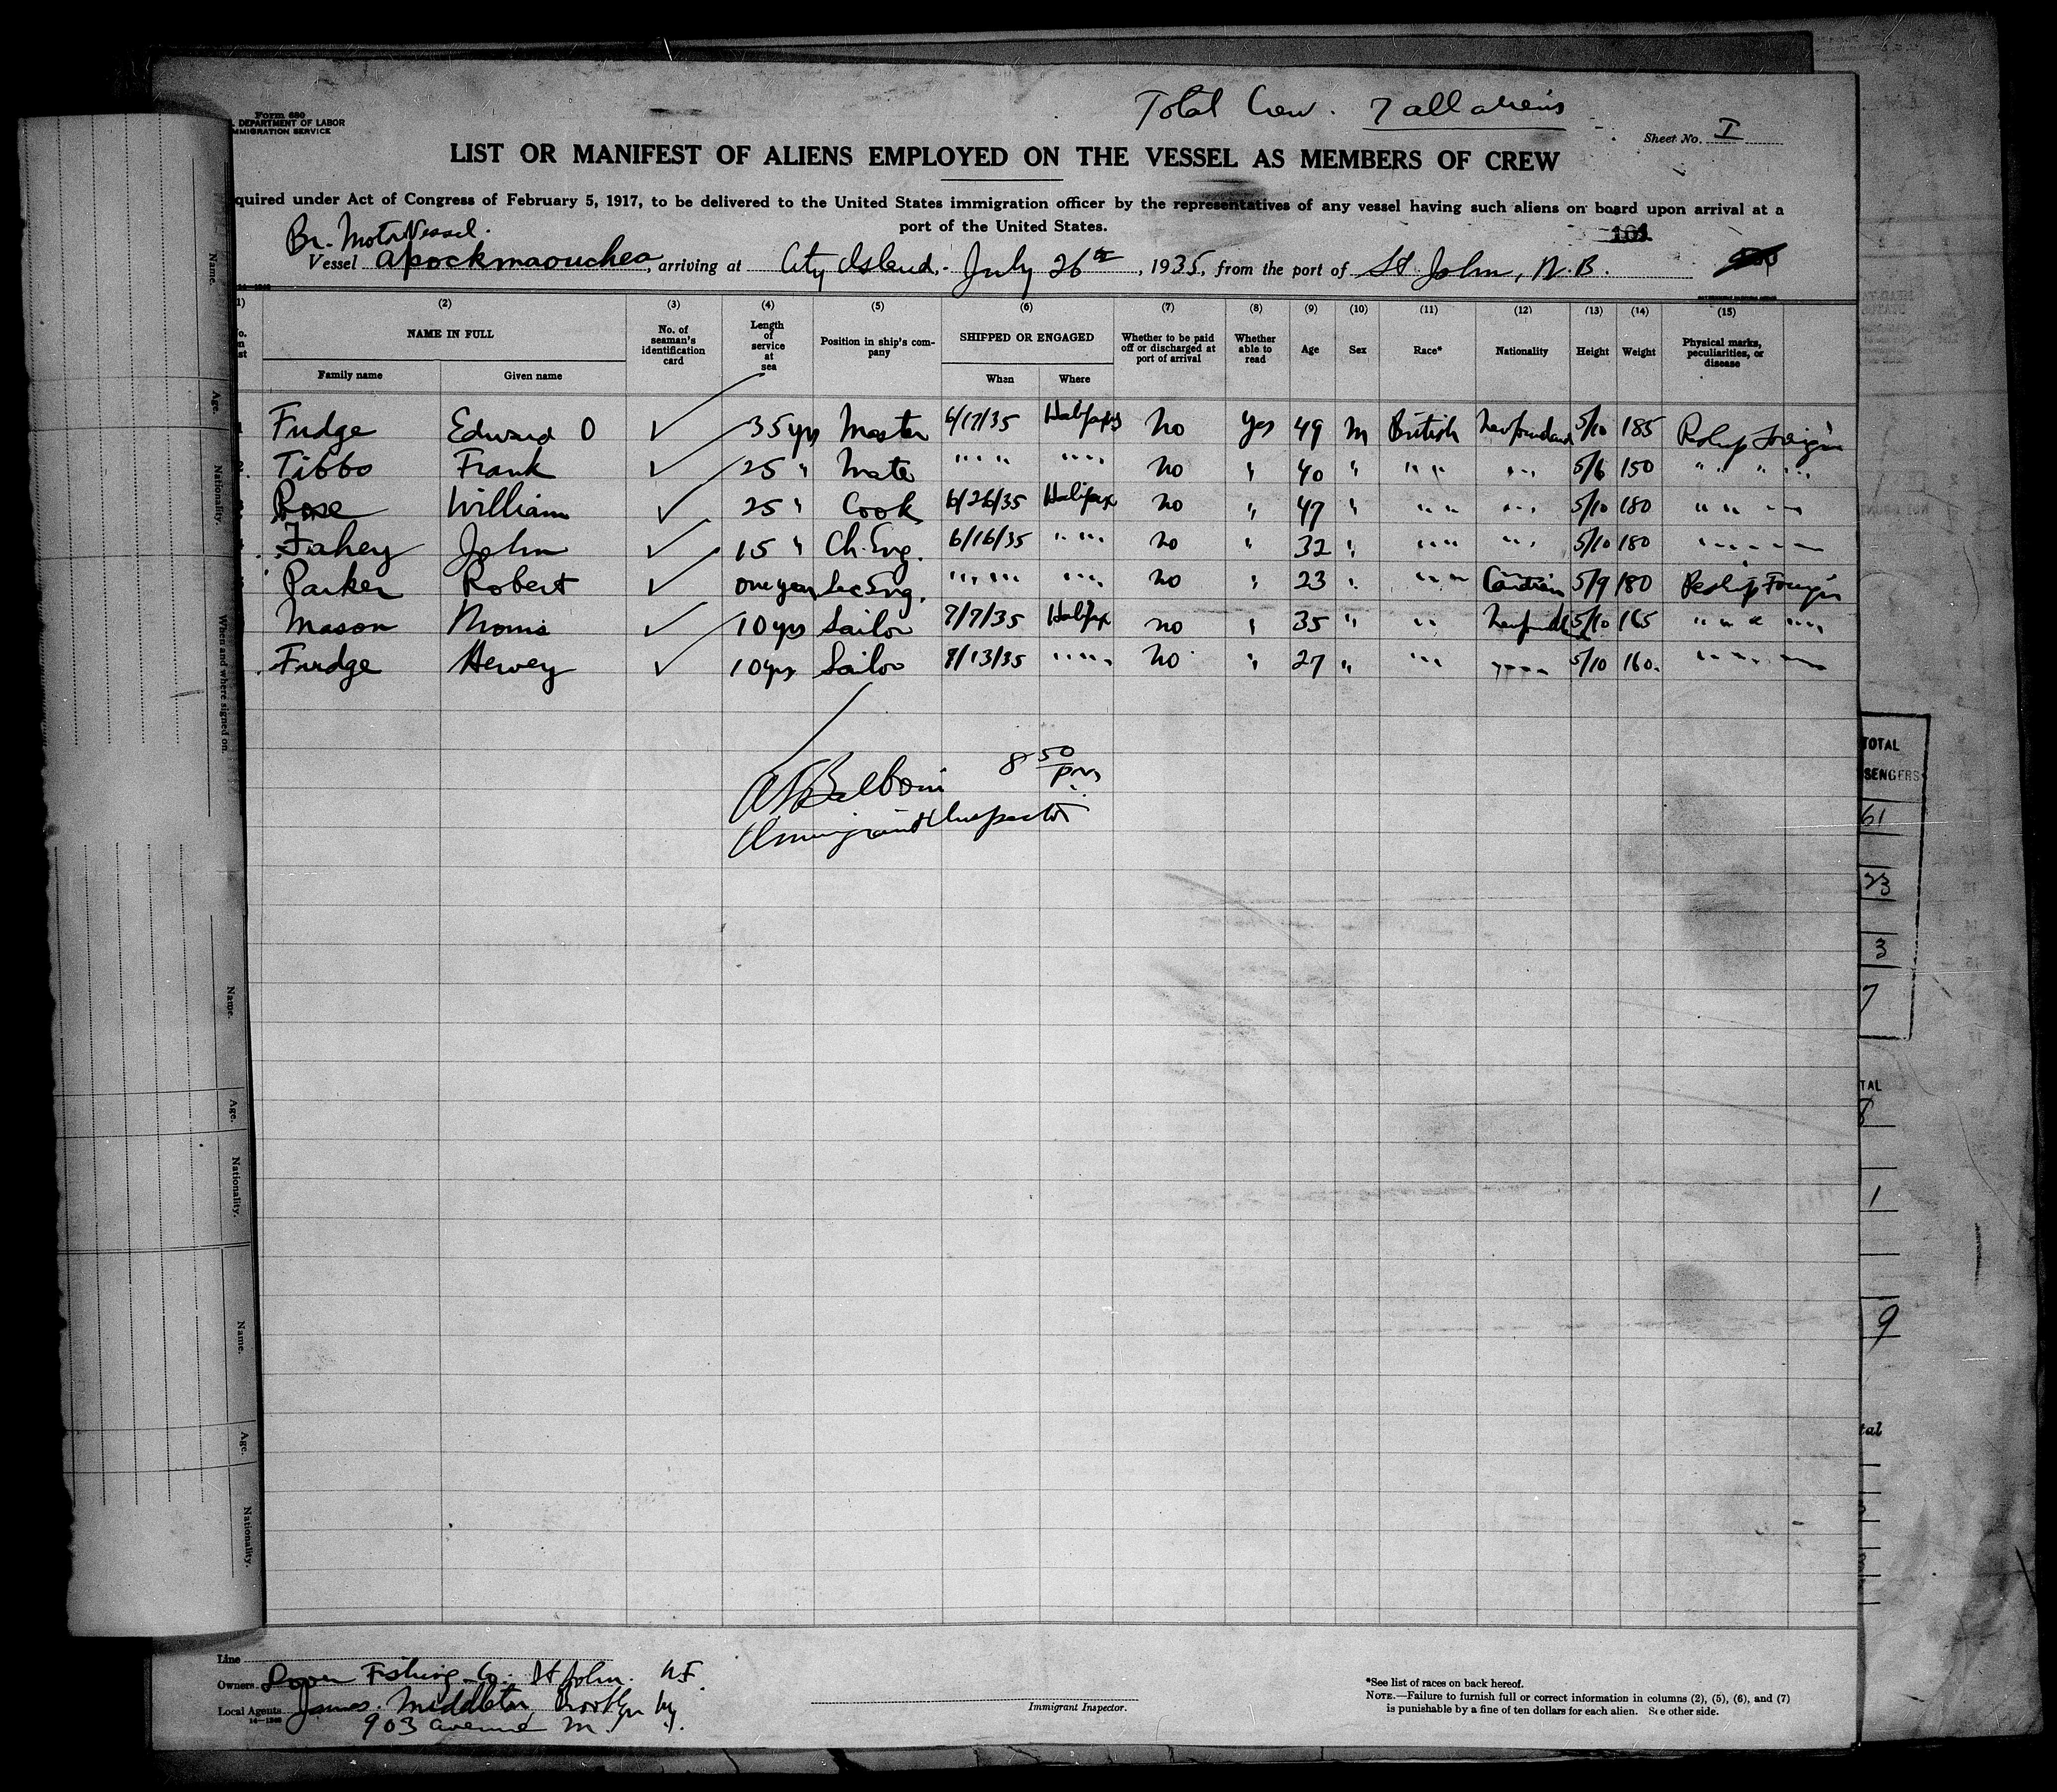 Total Crew. 7 all aliens
Form 680
DEPARTMENT OF LABOR
IMMIGRATION SERVICE
Sheet No. I
LIST OR MANIFEST OF ALIENS EMPLOYED ON THE VESSEL AS MEMBERS OF CREW
quired under Act of Congress of February 5, 1917, to be delivered to the United States immigration officer by the representatives of any vessel having such aliens on board upon arrival at a
port of the United States.
Br. Motor Vessel.
Vessel Apockmaouchea, arriving at City Island, July 26th, 1935, from the port of St John, N.B.
(2) (3) (4) (5) (6) (7) (8) (9) (10) (11) (12) (13) (14) (15)
NAME IN FULL No. of seaman's identification card Length of service at sea Position in ship's com-pany SHIPPED OR ENGAGED Whether to be paid off or discharged at port of arrival Whether able to read Age Sex Race* Nationality Height Weight Physical marks, peculiarities, or disease
Family name Given name When Where
Fudge Edward O ✓ 35 yrs Master 6/17/35 Halifax No Yes 49 M British Newfoundland 5/10 185
Tibbo Frank ✓ 25 " Mate " " " " " " No " 40 " " " " " 5/6 150 " " " "
Rose William ✓ 25 " Cook 6/26/35 Halifax No " 47 " " " " " 5/10 180 " " "
Fahey John ✓ 15 " Ch. Eng. 6/16/35 " " " No " 32 " " " " " 5/10 180 " " " "
Parker Robert ✓ one year Sec Eng. " " " " " " No " 23 " " " Canadian 5/9 180
Mason Morris ✓ 10 yrs Sailor 7/7/35 Halifax No " 35 " " " Newfoundland 5/10 165 " " " "
Fudge Hervey ✓ 10 yrs Sailor 7/13/35 " " " No " 27 " " " " " 5/10 160. " " " "
8 50 pm
Immigrant Inspector
Line
Owners Fishing Co. St John. N.F.
Local Agents James Middleton Brooklyn N.Y.
903 Avenue M.
14—1240
Immigrant Inspector.
*See list of races on back hereof.
NOTE.—Failure to furnish full or correct information in columns (2), (5), (6), and (7)
is punishable by a fine of ten dollars for each alien. See other side.
Name.
Age.
Nationality.
When and where signed on.
Name.
Age.
Nationality.
Name.
Age.
Nationality.
TOTAL
SENGERS
61
23
3
7
TAL
8
1
9
tal